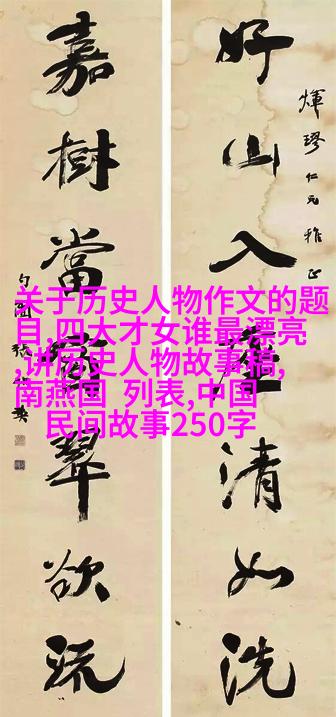 仁兄雅正
好山入清如洗
嘉樹當翠欲流
关于历史人物作文的题
目,四大才女谁最漂亮
,讲历史人物故事稿,
南燕国 列表,中国
民间故事250字